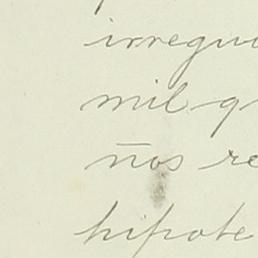 irregu
mil q
ños re
hipote